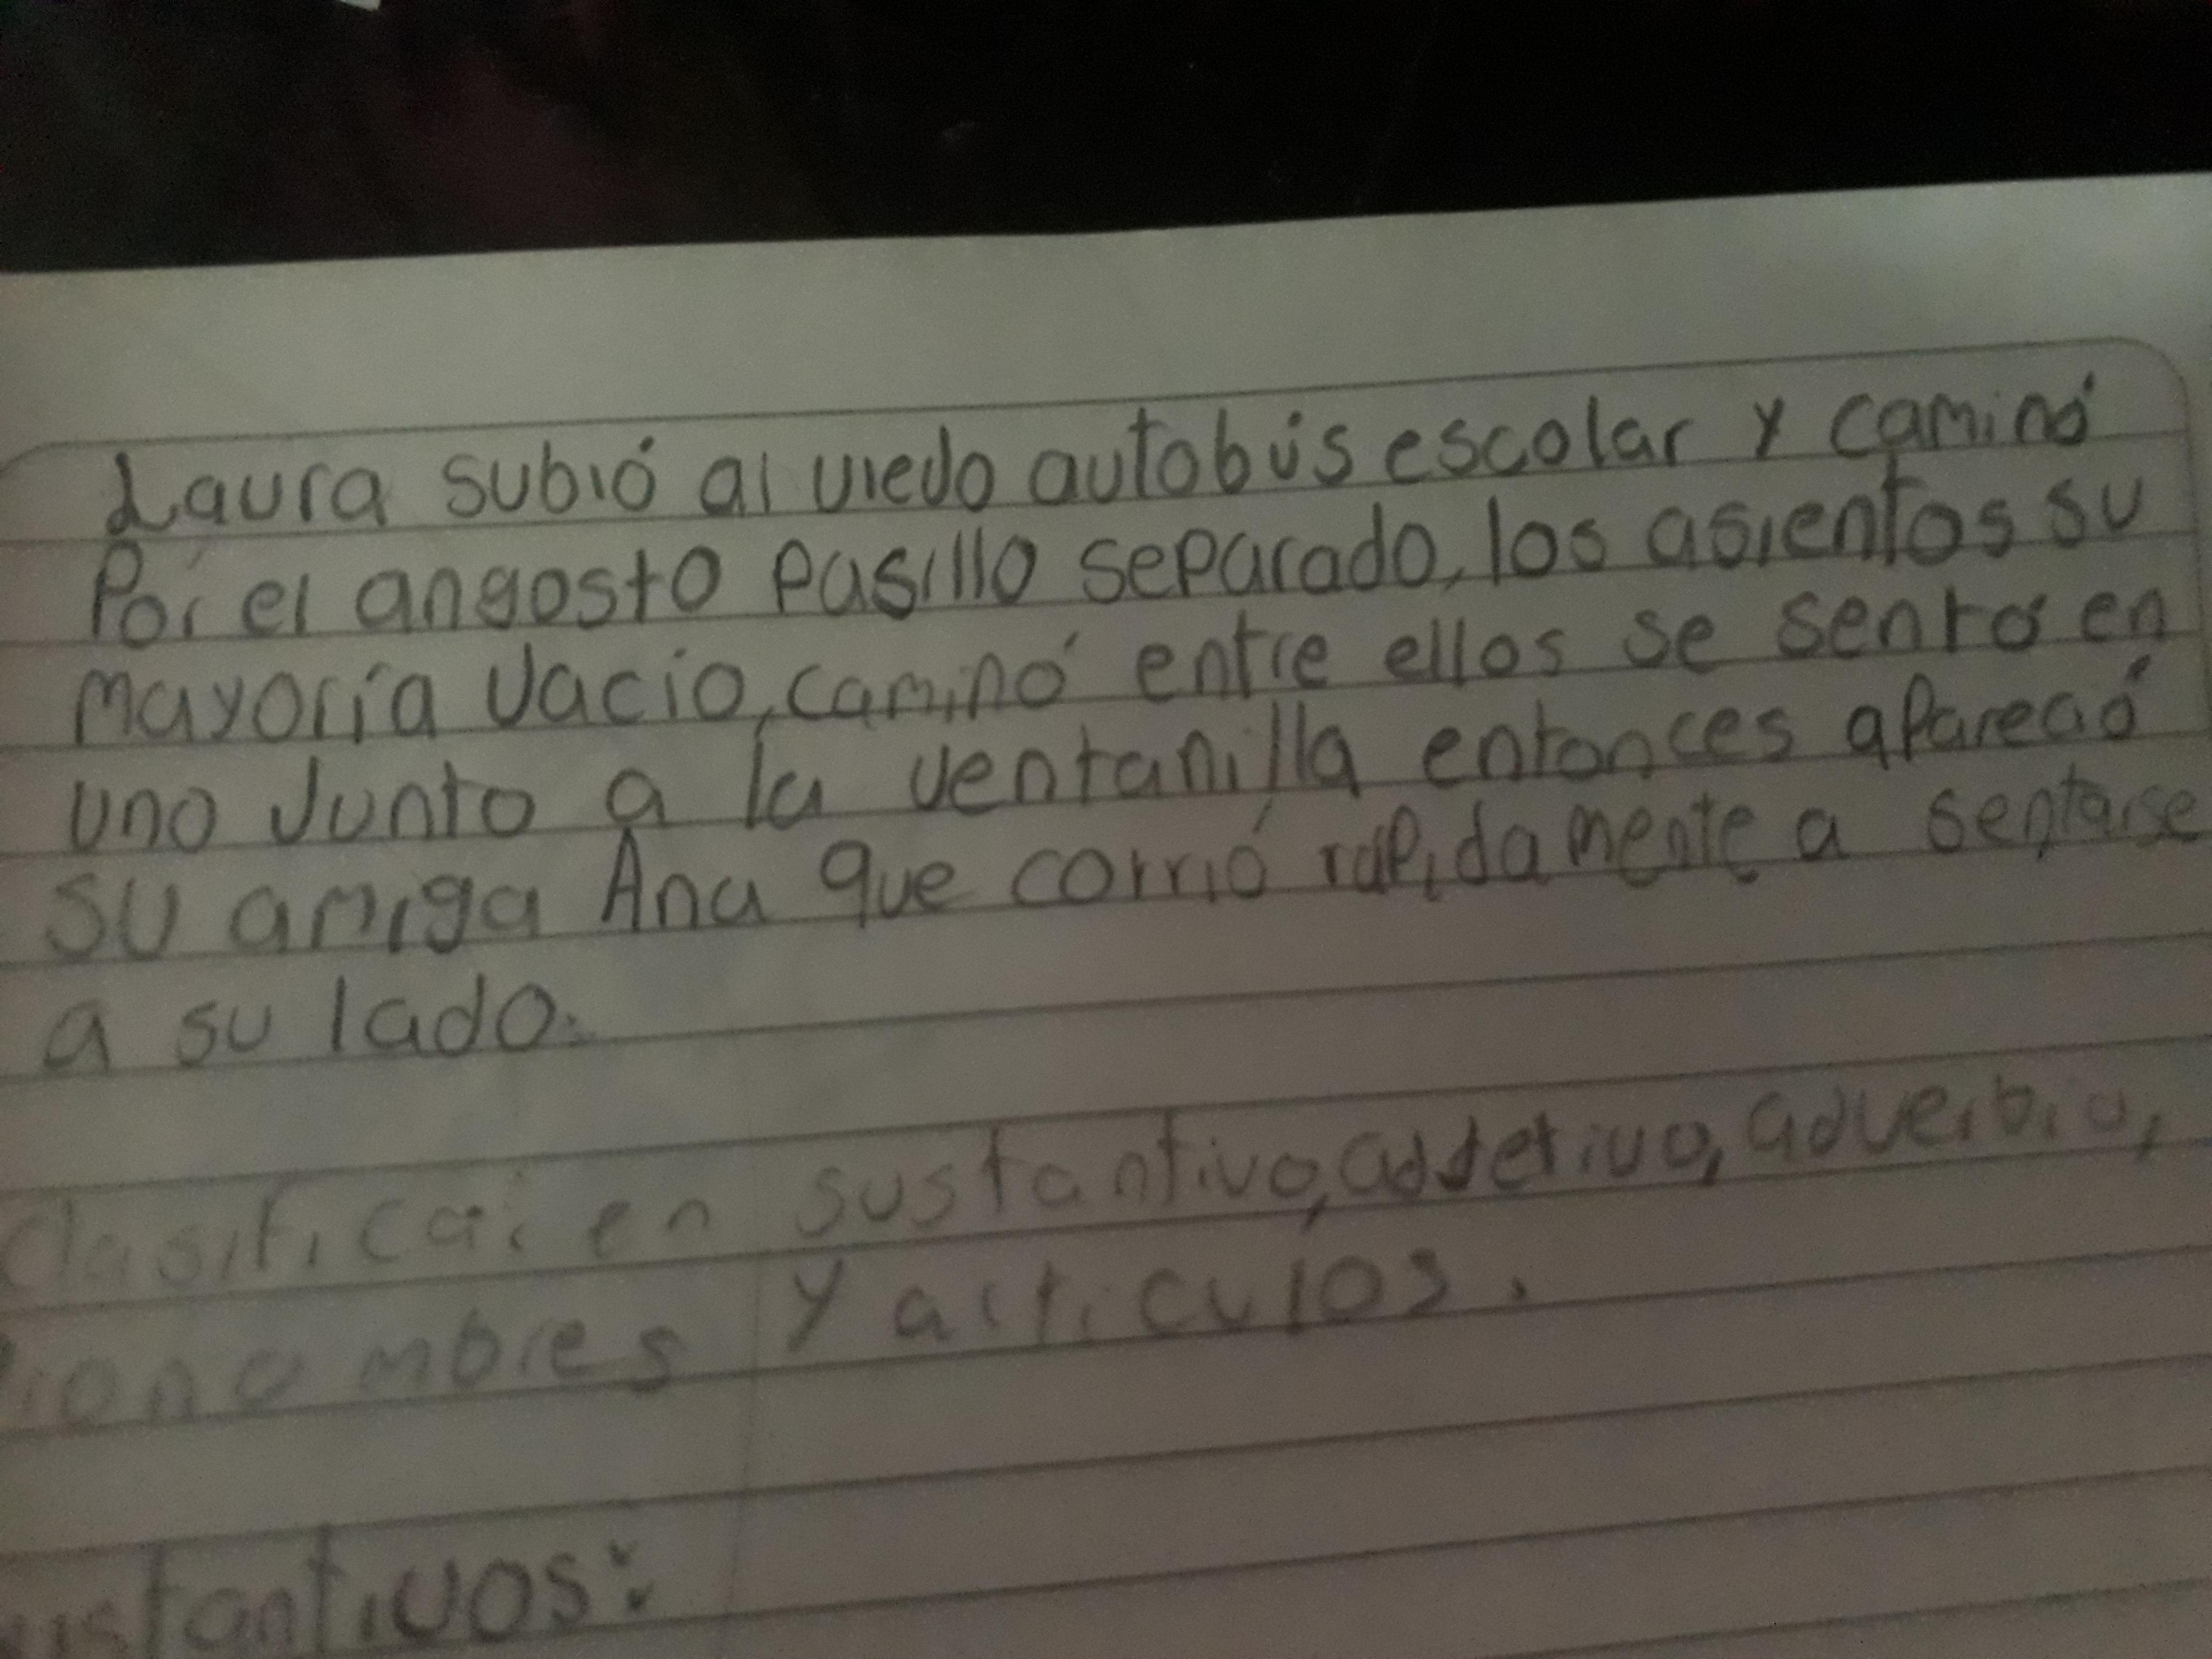 Laura subió al viejo autobús escolar y caminó
Por el angosto pasillo separado, los asientos su
mayoría vacio, caminó entre ellos se sentó en
uno Junto a la ventanilla entonces apareció
su amiga Ana que corrió rápidamente a sentarse
a su lado.
Clasificar en sustantivo, adjetivo, adverbio,
Pronombres y articulos.
sustantivos: